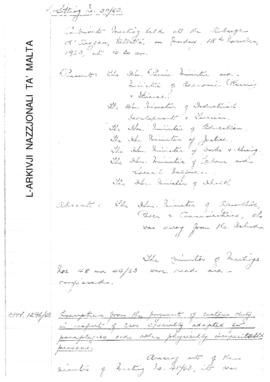 Sitting No. 50/63.
Cabinet Meeting held at the Auberge
d'Aragon, Valletta, on Monday 18th November,
1963, at 9.30 am.
Present: The Hon. Prime Minister and
Minister of Economic Planning
& Finance.
The Hon Minister of Industrial
Development & Tourism
The Hon. Minister of Education
The Hon Minister of Justice
The Hon. Minister of Works & Housing
The Hon. Minister of Labour and
Social Welfare.
The Hon. Minister of Health
Absent: The Hon. Minister of Agriculture,
Power & Communications, who
was away from the Island.
The minutes of Meetings
Nos 48 and 49/63 were read and
confirmed.
Exemption from the payment of customs duty
in respect of cars specially adapted for
paraplegics and other physically incapacitated
persons.
Arising out of the
minutes of Meeting No. /63, it was
L-ARKIVJI NAZZJONALI TA' MALTA